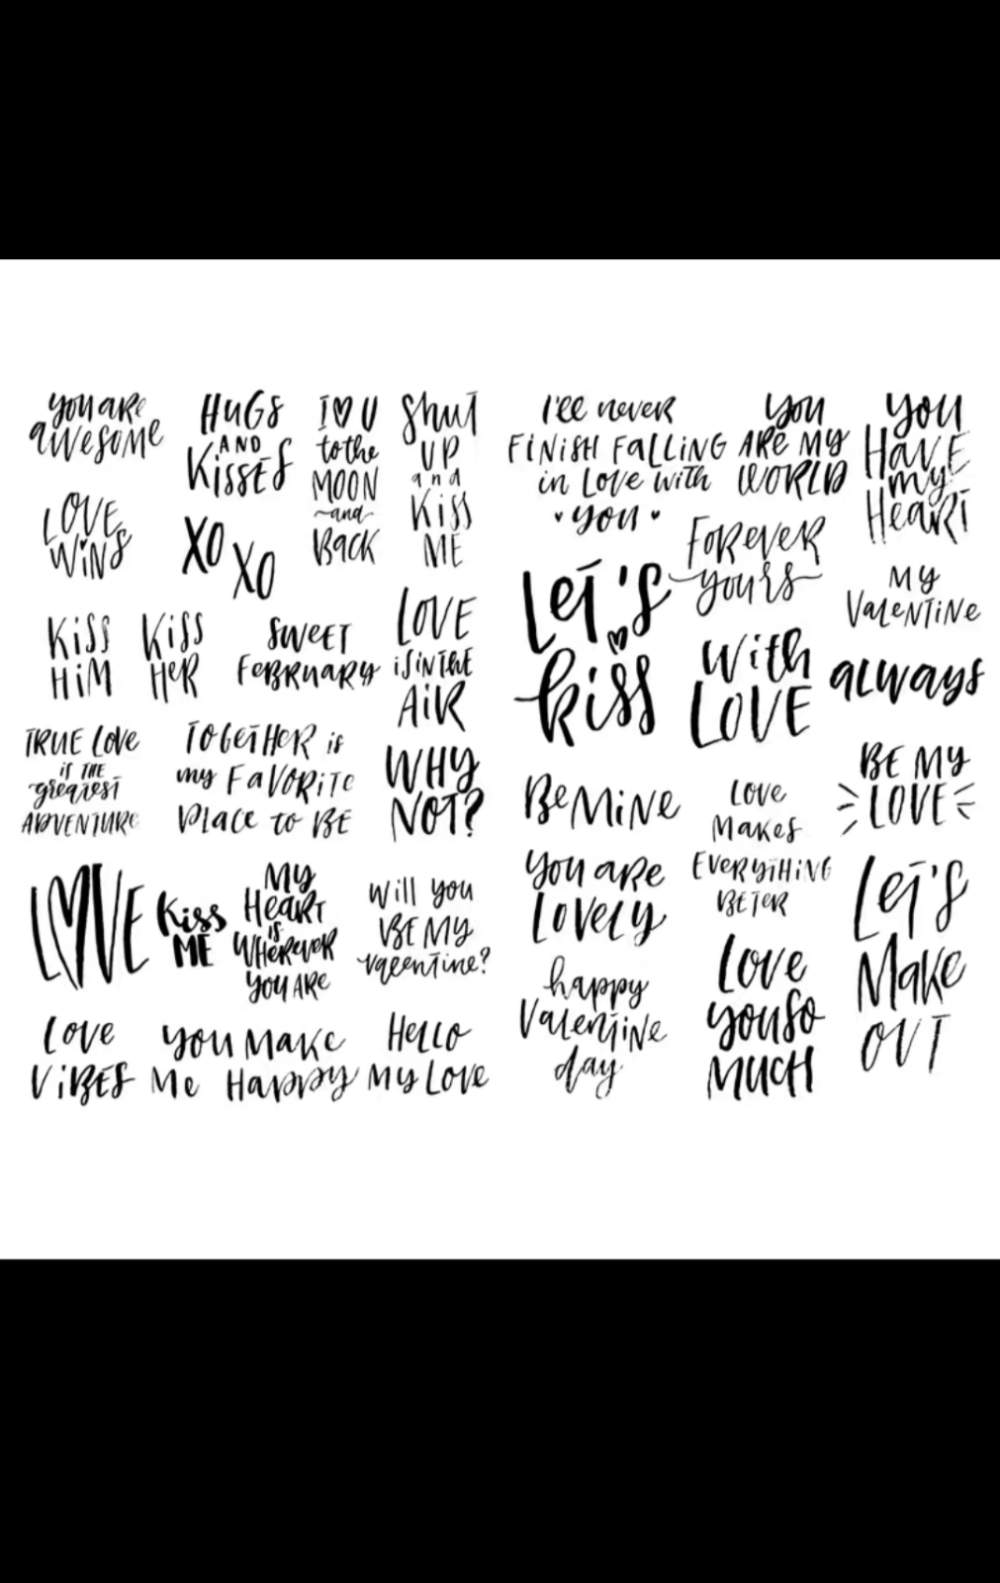 you are
awesome
HUGS
AND
Kisses
I♡U
to the
MOON
~and~
BACK
Shut
UP
and
Kiss
ME
LOVE
WiNS
XO
XO
KiSS
HiM
KiSS
HeR
SWEET
FEBRUARY
LOVE
iS IN THE
AiR
TRUE LOVE
is THE
greatest
ADVENTURE
TOGETHER is
my FAVORiTe
PLACE to BE
WHY
NOT?
LOVE
Kiss
ME
MY
HEART
iS
WHEREVER
YOU ARE
Will you
BE MY
valentine?
LOVE
ViBES
you MAKE
Me HAPPY
HELLO
MY LOVE
I'll never
FINISH FALLING
in Love with
♥ you ♥
you
ARE MY
WORLD
you
HAVE
my
HEART
FOREVER
yours
MY
VALENTINE
LET'S
kiss
With
LOVE
ALWAYS
BE MiNE
LOVE
MAKES
EVERYTHING
BETER
BE MY
LOVE
you ARE
LOVELY
LET'S
MAKE
OUT
happy
VALENTINE
day
LOVE
you So
MUCH